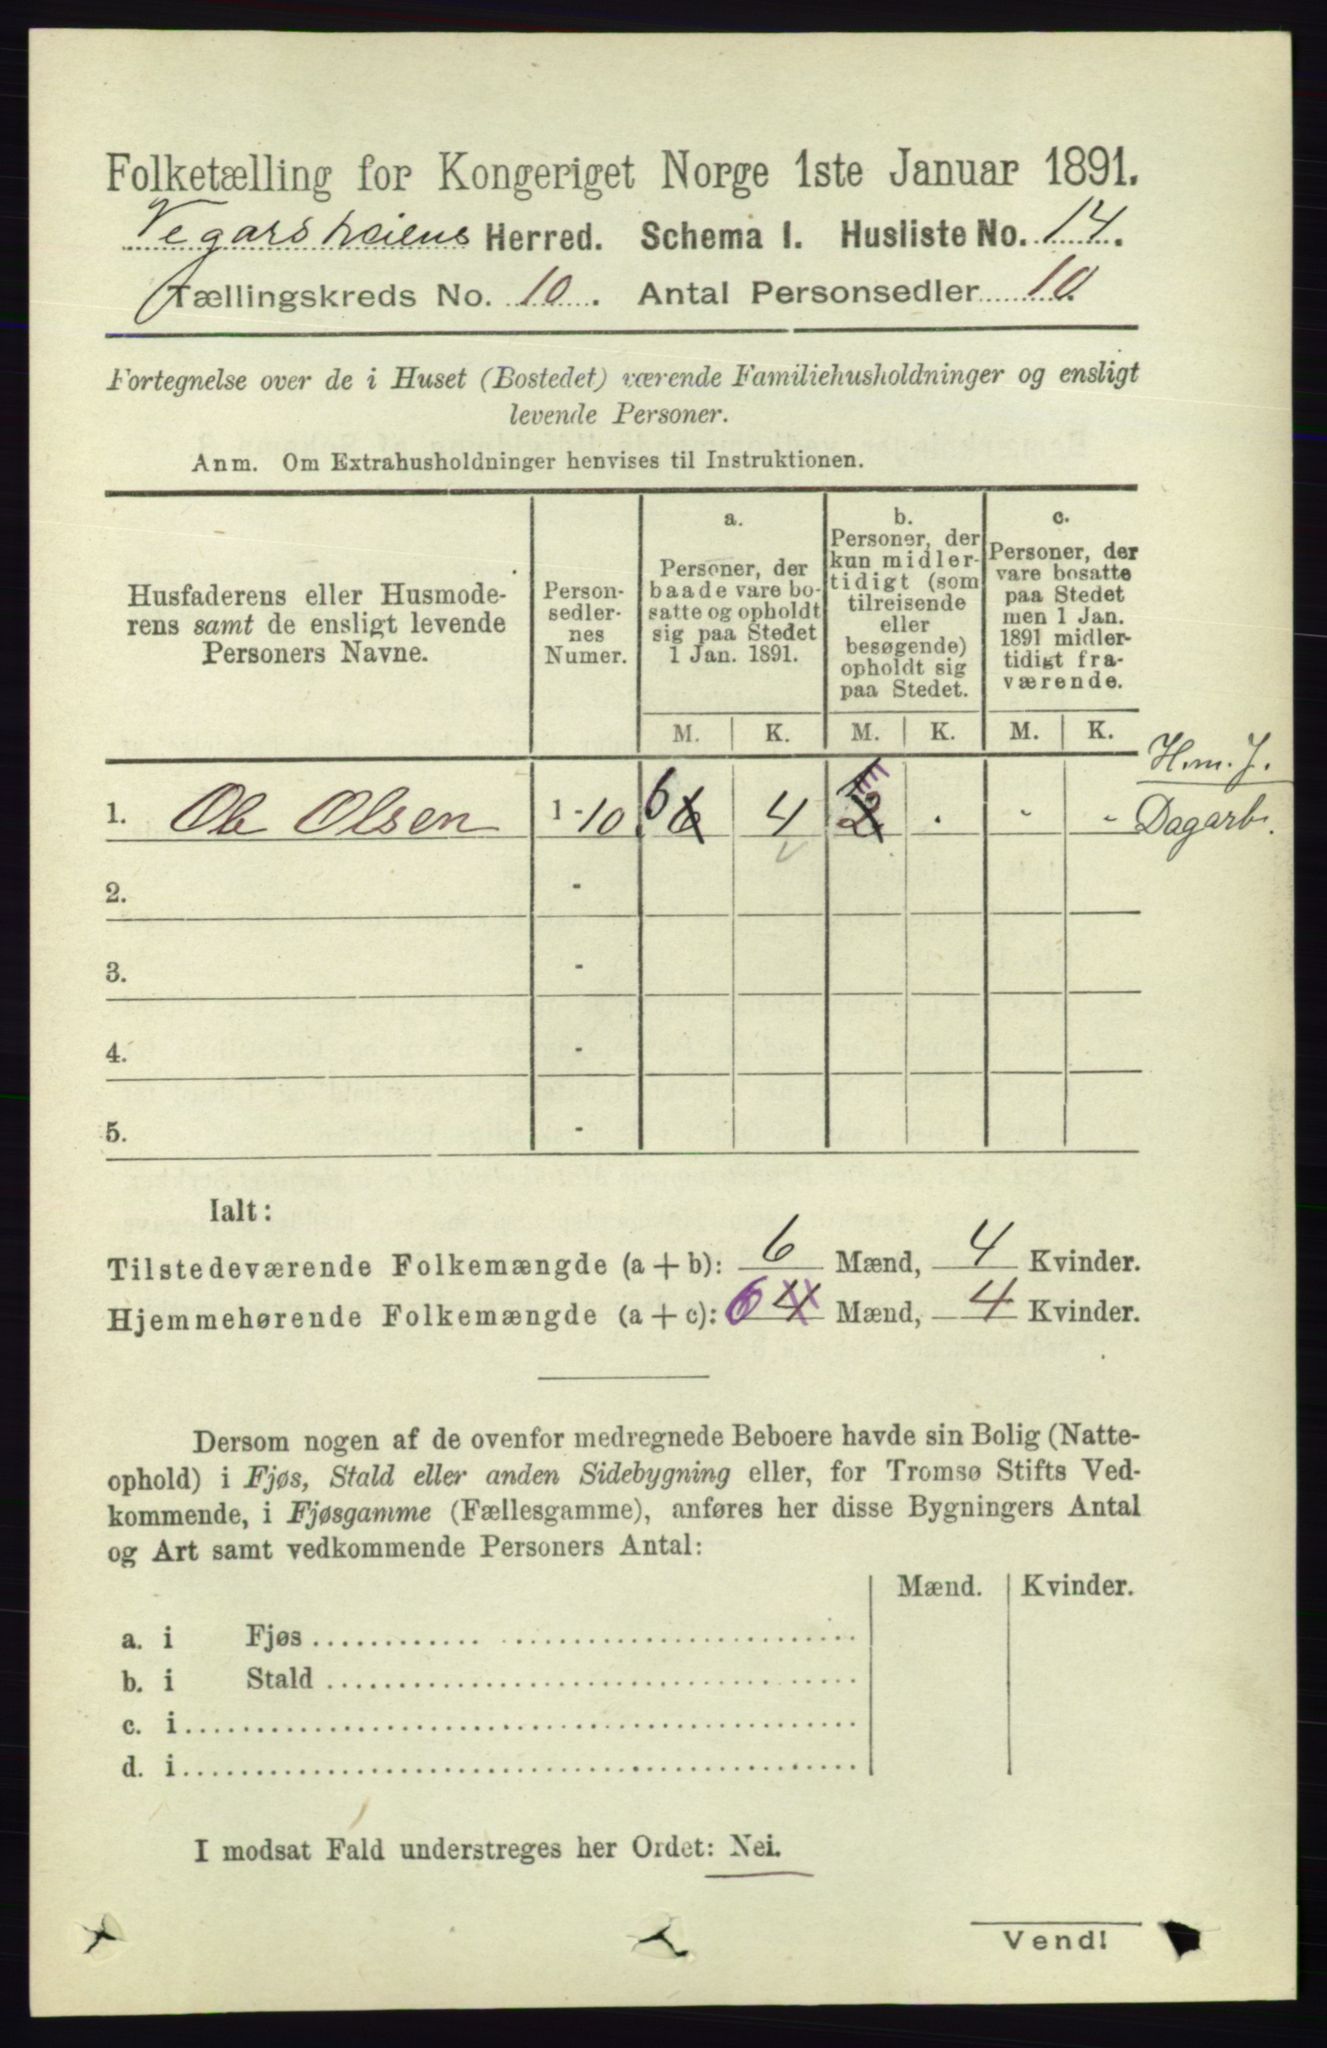 Folketælling for Kongeriget Norge 1ste Januar 1891.
Vegarsheiens Herred. Schema I. Husliste No. 14.
Tællingskreds No. 10. Antal Personsedler 10.
Fortegnelse over de i Huset (Bostedet) værende Familiehusholdninger og ensligt
levende Personer.
Anm. Om Extrahusholdninger henvises til Instruktionen.
Husfaderens eller Husmode-
rens samt de ensligt levende
Personers Navne.
Person-
sedler-
nes
Numer.
a.
Personer, der
baade vare bo-
satte og opholdt
sig paa Stedet
1 Jan. 1891.
b.
Personer, der
kun midler-
tidigt (som
tilreisende
eller
besøgende)
opholdt sig
paa Stedet.
c.
Personer, der
vare bosatte
paa Stedet
men 1 Jan.
1891 midler-
tidigt fra-
værende.
M. K. M. K. M. K.
H.m. J.
1. Ole Olsen 1-10 6 4 2 . - - Dagarb.
2. -
3. -
4. -
5. -
Ialt:
Tilstedeværende Folkemængde (a + b): 6 Mænd, 4 Kvinder.
Hjemmehørende Folkemængde (a + c): 6 4 Mænd, 4 Kvinder.
Dersom nogen af de ovenfor medregnede Beboere havde sin Bolig (Natte-
ophold) i Fjøs, Stald eller anden Sidebygning eller, for Tromsø Stifts Ved-
kommende, i Fjøsgamme (Fællesgamme), anføres her disse Bygningers Antal
og Art samt vedkommende Personers Antal:
Mænd. Kvinder.
a. i Fjøs
b. i Stald
c. i
d. i
I modsat Fald understreges her Ordet: Nei.
Vend!